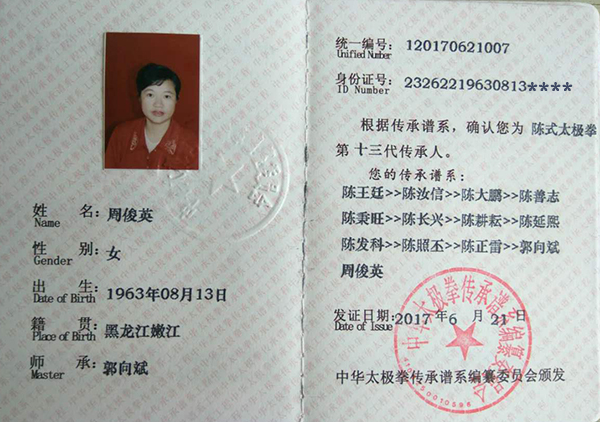 姓 名：周俊英
Name
性 别：女
Gender
出 生：1963年08月13日
Date of Birth
籍 贯：黑龙江嫩江
Place of Birth
师 承：郭向斌
Master
统一编号：120170621007
Unified Number
身份证号：23262219630813****
ID Number
根据传承谱系，确认您为 陈式太极拳
第 十三代传承人。
您的传承谱系：
陈王廷>>陈汝信>>陈大鹏>>陈善志
陈秉旺>>陈长兴>>陈耕耘>>陈延熙
陈发科>>陈照丕>>陈正雷>>郭向斌
周俊英
发证日期：2017 年 6 月 21 日
Date of Issue
中华太极拳传承谱系编纂委员会颁发
中华太极拳传承谱系编纂委员会